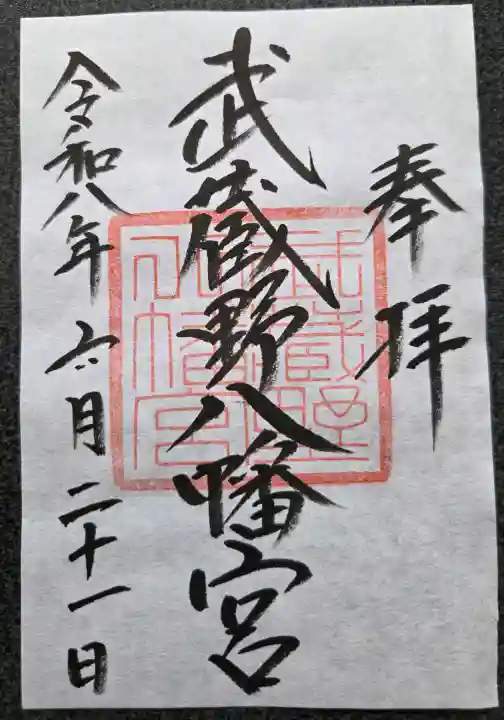 奉拝
武蔵野八幡宮
武蔵野
八幡宮
令和八年六月二十一日